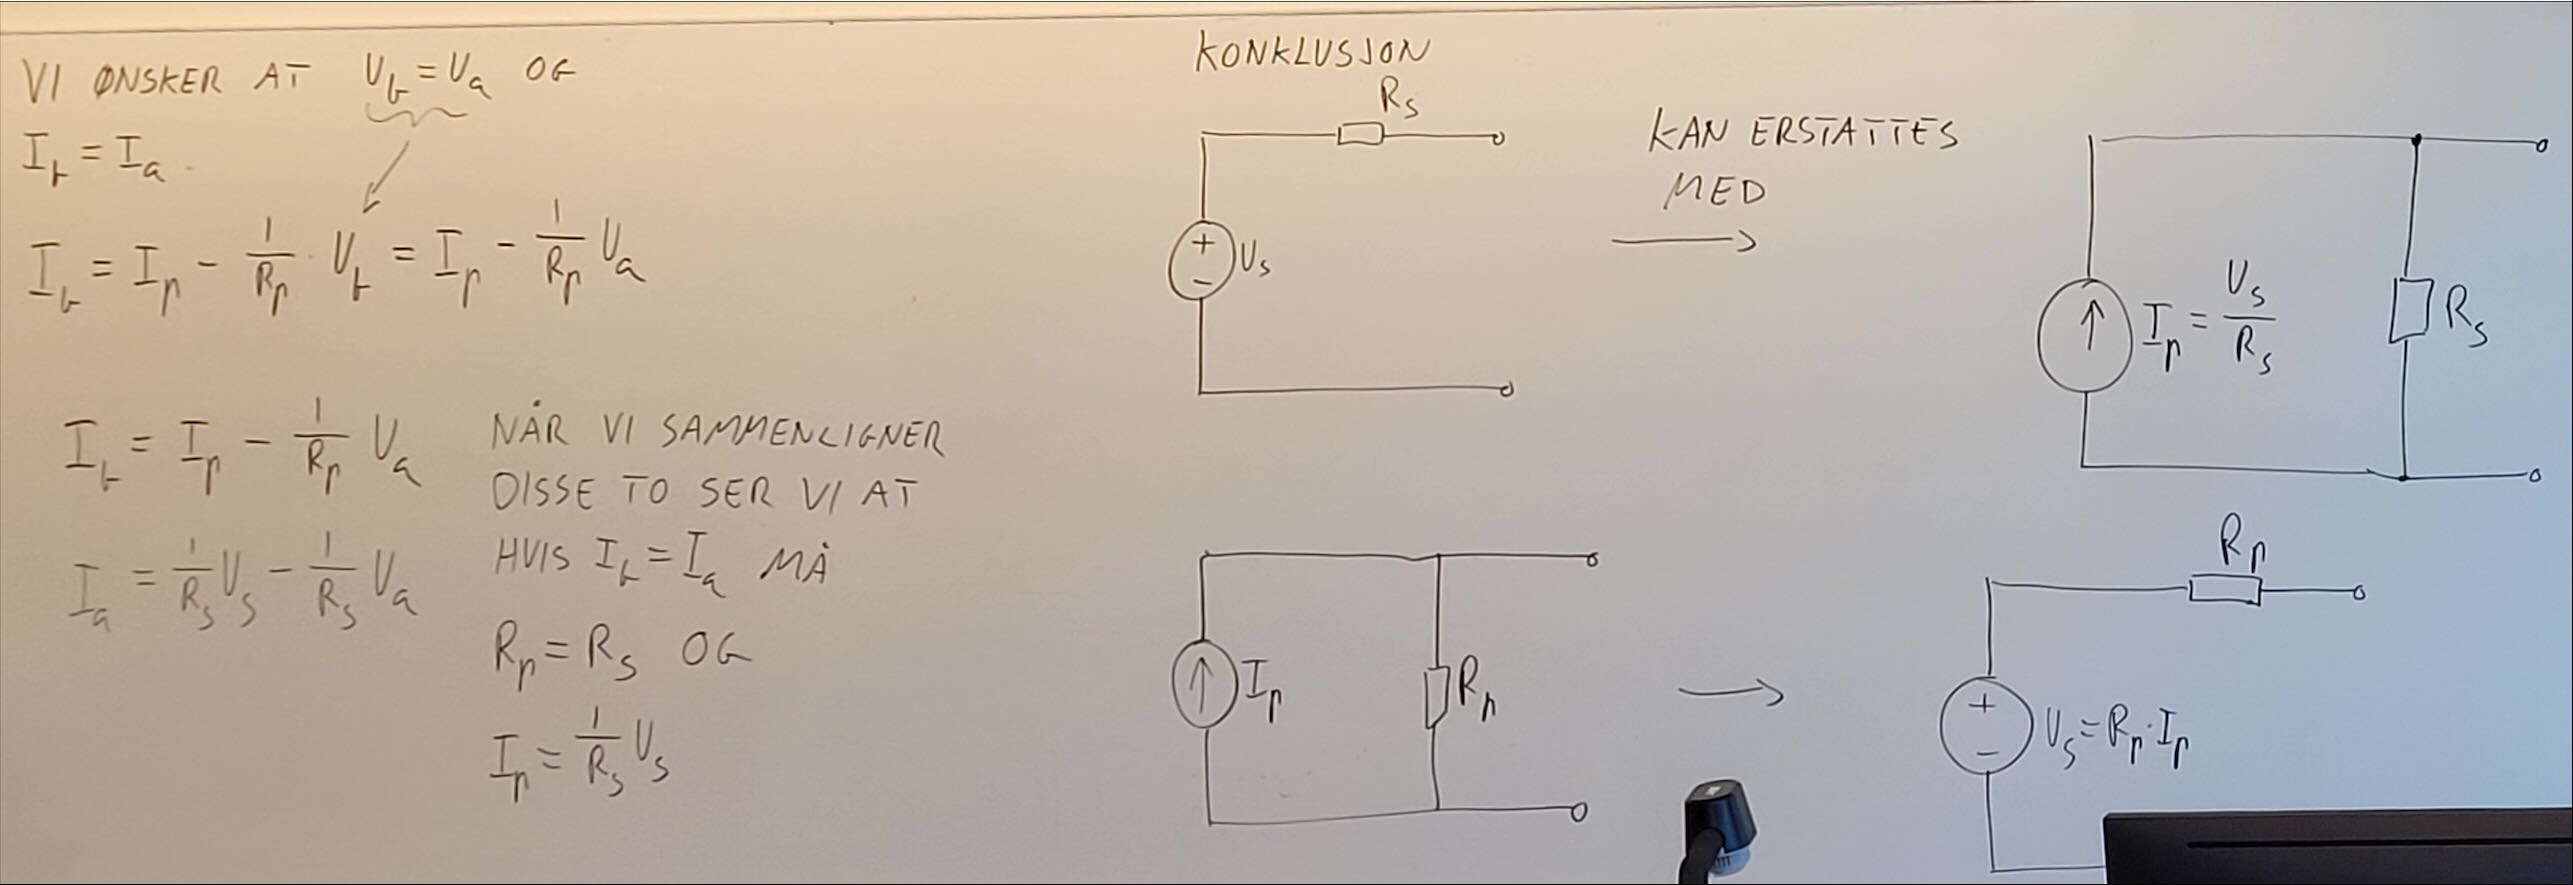 VI ØNSKER AT U_b = U_a OG
I_b = I_a.
I_b = I_p - 1/R_p · U_b = I_p - 1/R_p U_a
I_b = I_p - 1/R_p U_a
I_a = 1/R_s U_s - 1/R_s U_a
NÅR VI SAMMENLIGNER
DISSE TO SER VI AT
HVIS I_b = I_a MÅ
R_p = R_s OG
I_p = 1/R_s U_s
KONKLUSJON
R_s
+
U_s
-
KAN ERSTATTES
MED
I_p = U_s/R_s
R_s
I_p
R_p
R_p
+
U_s = R_p · I_p
-